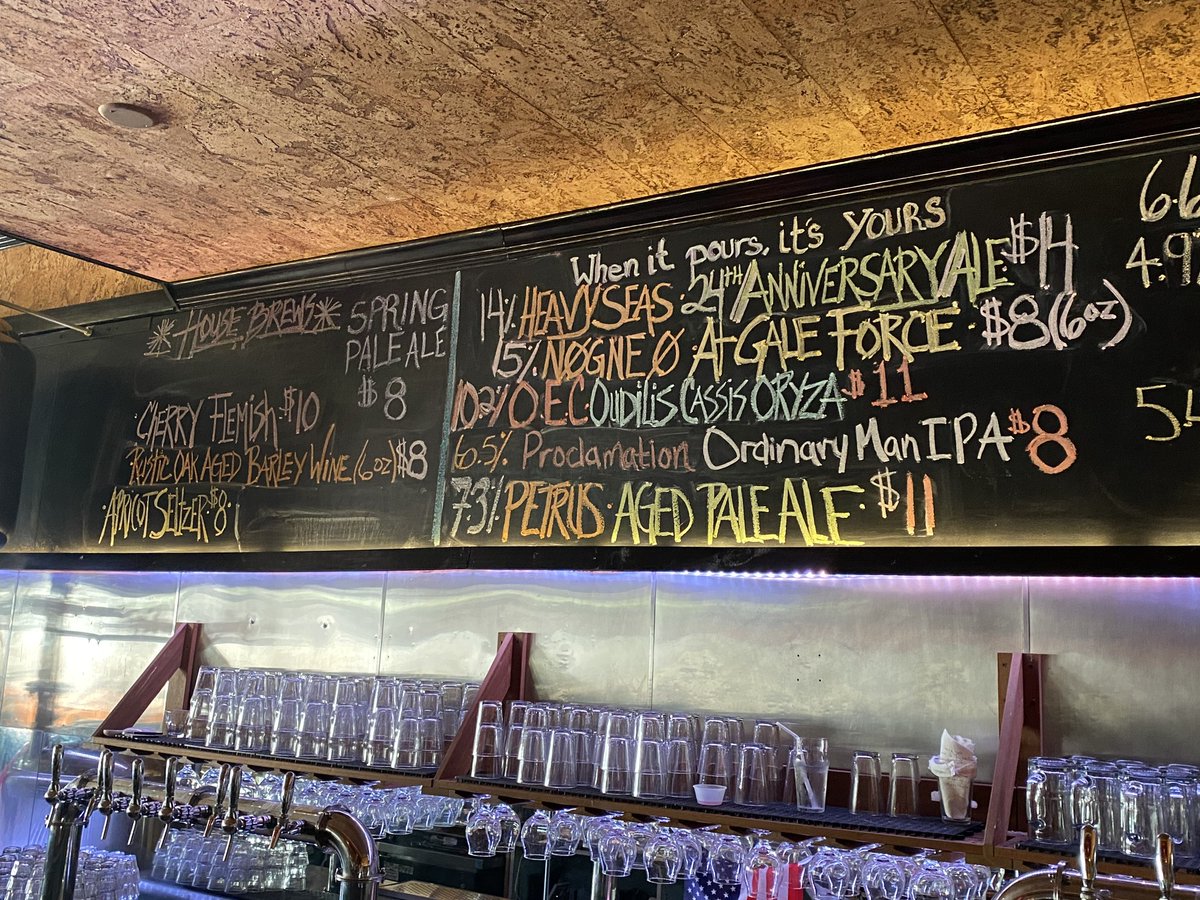 *HOUSE BREWS*
SPRING
PALE ALE
$8
·CHERRY FLEMISH·$10
RUSTIC OAK AGED BARLEY WINE (6oz) $8
APRICOT SELTZER·$8·
When it pours, it's YOURS
14% HEAVY SEAS· 24TH ANNIVERSARY ALE· $14
15% NØGNE Ø At GALE FORCE· $8 (6oz)
10.2% O.E.C. OUDILIS CASSIS ORYZA $11
6.5% Proclamation Ordinary Man IPA $8
7.3% PETRUS· AGED PALE ALE· $11